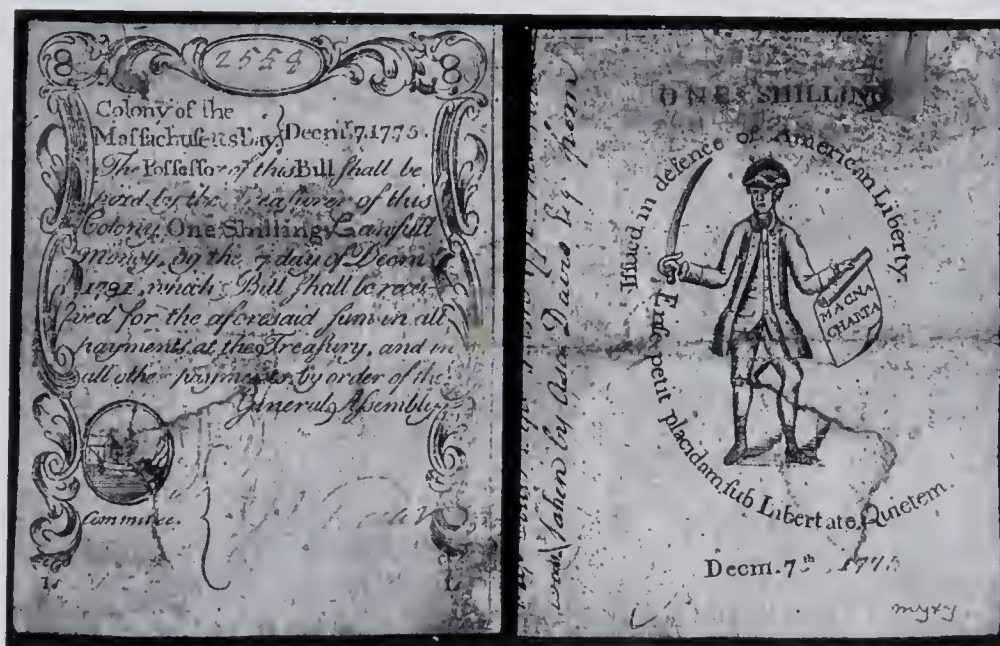 8 2554 8
Colony of the
Maſſachuſetts Bay, } Decmr. 7. 1775.
The Poſſeſſor of this Bill ſhall be
paid by the Treaſurer of this
Colony, One Shilling, Lawfull
Money, by the 7 day of Decmr
1791. which Bill ſhall be recei-
ved for the aforeſaid ſum in all
payments at the Treaſury, and in
all other payments by order of the
General Aſſembly.
Committee.
ONE SHILLING
Iſſued in defence of American Liberty.
MAGNA
CHARTA
Enſe petit placidam, ſub Libertate, Quietem.
Decm. 7th 1775
taken by Aſa Davis Esq from